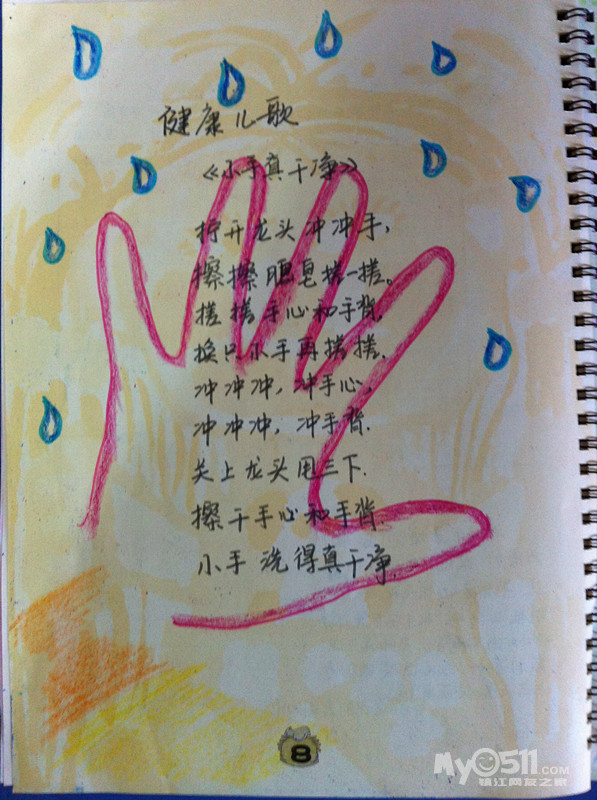 健康儿歌
《小手真干净》
拧开龙头冲冲手,
擦擦肥皂搓一搓。
搓搓手心和手背,
换只小手再搓搓.
冲冲冲,冲手心,
冲冲冲,冲手背.
关上龙头甩三下.
擦干手心和手背.
小手洗得真干净.
8
My0511.COM
镇江网友之家